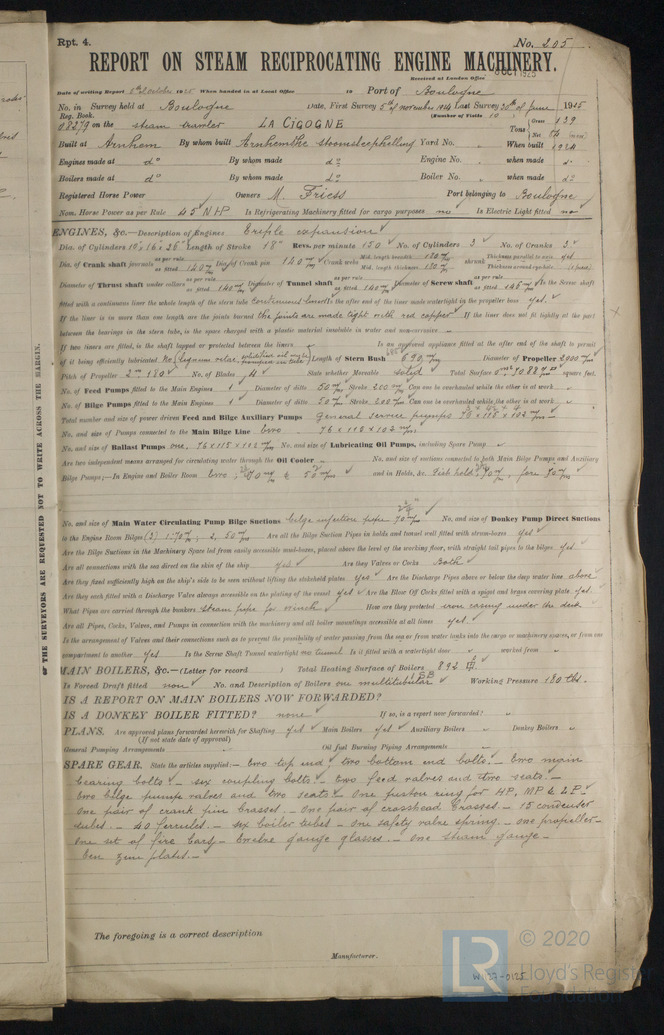 Rpt. 4.
No. 205
REPORT ON STEAM RECIPROCATING ENGINE MACHINERY.
Received at London Office
Date of writing Report 19 When handed in at Local Office 19 Port of Boulogne
No. in Reg. Book. Survey held at Boulogne Date, First Survey 5th of November 1924 Last Survey 30th of June 1925
(Number of Visits 10)
08279 on the steam trawler LA CIGOGNE Tons Gross 139 Net
Built at Arnhem By whom built Yard No. When built 1924
Engines made at do By whom made do Engine No. when made do
Boilers made at do By whom made do Boiler No. when made do
Registered Horse Power Owners M. Friess Port belonging to Boulogne
Nom. Horse Power as per Rule 45 NHP Is Refrigerating Machinery fitted for cargo purposes no Is Electric Light fitted no
ENGINES, &c.—Description of Engines Triple expansion
Dia. of Cylinders Length of Stroke 18" Revs. per minute 150 No. of Cylinders 3 No. of Cranks 3
Dia. of Crank shaft journals as per rule as fitted 140 m/m Dia. of Crank pin 140 m/m Crank webs Mid. length breadth Mid. length thickness shrunk Thickness parallel to axis Thickness around eye-hole
Diameter of Thrust shaft under collars as per rule as fitted 140 m/m Diameter of Tunnel shaft as per rule as fitted 140 m/m Diameter of Screw shaft as per rule as fitted 145 m/m Is the Screw shaft
fitted with a continuous liner the whole length of the stern tube Is the after end of the liner made watertight in the propeller boss yes
If the liner is in more than one length are the joints burned the joints are made tight with red copper If the liner does not fit tightly at the part
between the bearings in the stern tube, is the space charged with a plastic material insoluble in water and non-corrosive
If two liners are fitted, is the shaft lapped or protected between the liners Is an approved appliance fitted at the after end of the shaft to permit
of it being efficiently lubricated No Length of Stern Bush 690 m/m Diameter of Propeller 2000 m/m
Pitch of Propeller No. of Blades 4 State whether Moveable solid Total Surface square feet.
No. of Feed Pumps fitted to the Main Engines 1 Diameter of ditto 50 m/m Stroke 200 m/m Can one be overhauled while the other is at work
No. of Bilge Pumps fitted to the Main Engines 1 Diameter of ditto 50 m/m Stroke 200 m/m Can one be overhauled while the other is at work
Total number and size of power driven Feed and Bilge Auxiliary Pumps General service pumps 76 x 115 x 102 m/m
No. and size of Pumps connected to the Main Bilge Line two 76 x 115 x 102 m/m
No. and size of Ballast Pumps one, 76 x 115 x 102 m/m No. and size of Lubricating Oil Pumps, including Spare Pump
Are two independent means arranged for circulating water through the Oil Cooler No. and size of suctions connected to both Main Bilge Pumps and Auxiliary
Bilge Pumps;—In Engine and Boiler Room two, 70 m/m & 50 m/m and in Holds, &c. Fish hold 70 m/m fore 70 m/m
No. and size of Main Water Circulating Pump Bilge Suctions bilge injection pipe 70 m/m No. and size of Donkey Pump Direct Suctions
to the Engine Room Bilges (3) 1. 70 m/m; 2. 50 m/m Are all the Bilge Suction Pipes in holds and tunnel well fitted with strum-boxes yes
Are the Bilge Suctions in the Machinery Space led from easily accessible mud-boxes, placed above the level of the working floor, with straight tail pipes to the bilges yes
Are all connections with the sea direct on the skin of the ship yes Are they Valves or Cocks Both
Are they fixed sufficiently high on the ship's side to be seen without lifting the stokehold plates yes Are the Discharge Pipes above or below the deep water line above
Are they each fitted with a Discharge Valve always accessible on the plating of the vessel yes Are the Blow Off Cocks fitted with a spigot and brass covering plate yes
What Pipes are carried through the bunkers steam pipe for winch How are they protected iron casing under the deck
Are all Pipes, Cocks, Valves, and Pumps in connection with the machinery and all boiler mountings accessible at all times yes
Is the arrangement of Valves and their connections such as to prevent the possibility of water passing from the sea or from water tanks into the cargo or machinery spaces, or from one
compartment to another yes Is the Screw Shaft Tunnel watertight no tunnel Is it fitted with a watertight door worked from
MAIN BOILERS, &c.—(Letter for record ) Total Heating Surface of Boilers 892
Is Forced Draft fitted none No. and Description of Boilers one multitubular Working Pressure 180 lbs.
IS A REPORT ON MAIN BOILERS NOW FORWARDED?
IS A DONKEY BOILER FITTED? none If so, is a report now forwarded?
PLANS. Are approved plans forwarded herewith for Shafting yes Main Boilers yes Auxiliary Boilers Donkey Boilers
(If not state date of approval)
General Pumping Arrangements Oil fuel Burning Piping Arrangements
SPARE GEAR. State the articles supplied:— two top end, two bottom end bolts. — two main
bearing bolts — six coupling bolts — two feed valves and two seats. —
two bilge pumps valves and two seats. One piston ring for HP, MP & LP. —
one pair of crank pin brasses. — One pair of crosshead brasses. — 15 condenser
tubes. — 40 ferrules. — six boiler tubes — one safety valve spring. — one propeller —
one set of fire bars — twelve gauge glasses. — one steam gauge —
ten zinc plates. —
The foregoing is a correct description
Manufacturer.
OF THE SURVEYORS ARE REQUESTED NOT TO WRITE ACROSS THE MARGIN.
LR
© 2020
Lloyd's Register
Foundation